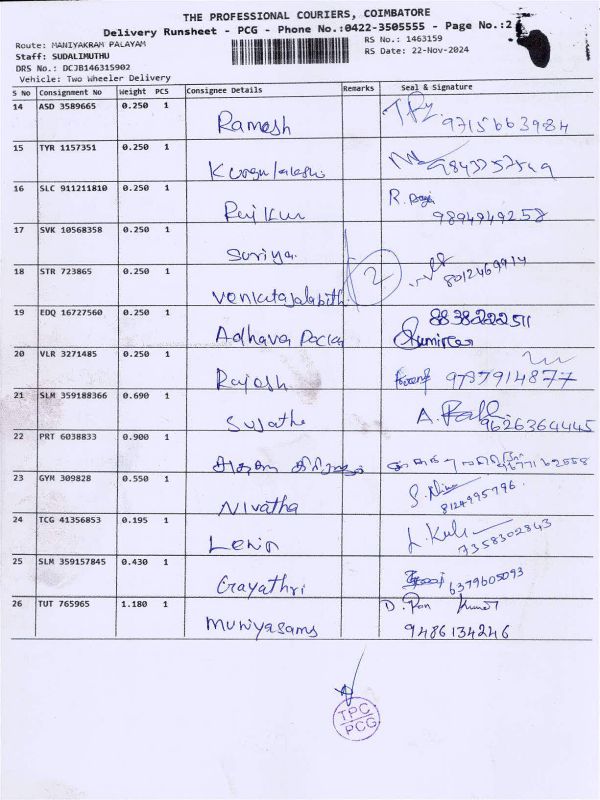 THE PROFESSIONAL COURIERS, COIMBATORE
Delivery Runsheet - PCG - Phone No.:0422-3505555 - Page No.:2
Route: MANIYAKRAM PALAYAM
RS No.: 1463159
Staff: SUDALIMUTHU
RS Date: 22-Nov-2024
DRS No.: DCJB146315902
Vehicle: Two Wheeler Delivery
S No Consignment No Weight PCS Consignee Details Remarks Seal & Signature
14 ASD 3589665 0.250 1 Ramesh 9715663984
15 TYR 1157351 0.250 1
16 SLC 911211810 0.250 1 Raj Kur R. 9894949258
17 SVK 10568358 0.250 1 Suriya 2
18 STR 723865 0.250 1 8012469914
19 EDQ 16727560 0.250 1 Adhava 8838222511
20 VLR 3271485 0.250 1 Rajesh 9787914877
21 SLM 359188366 0.690 1 Sujatha A. 9626364445
22 PRT 6038833 0.900 1
23 GYM 309828 0.550 1 Nivatha 8124995796
24 TCG 41356853 0.195 1 Lenin 7358302843
25 SLM 359157845 0.430 1 Gayathri 6379605093
26 TUT 765965 1.180 1 Muniyasamy D. Ram Kumar
9486134246
TPC
PCG